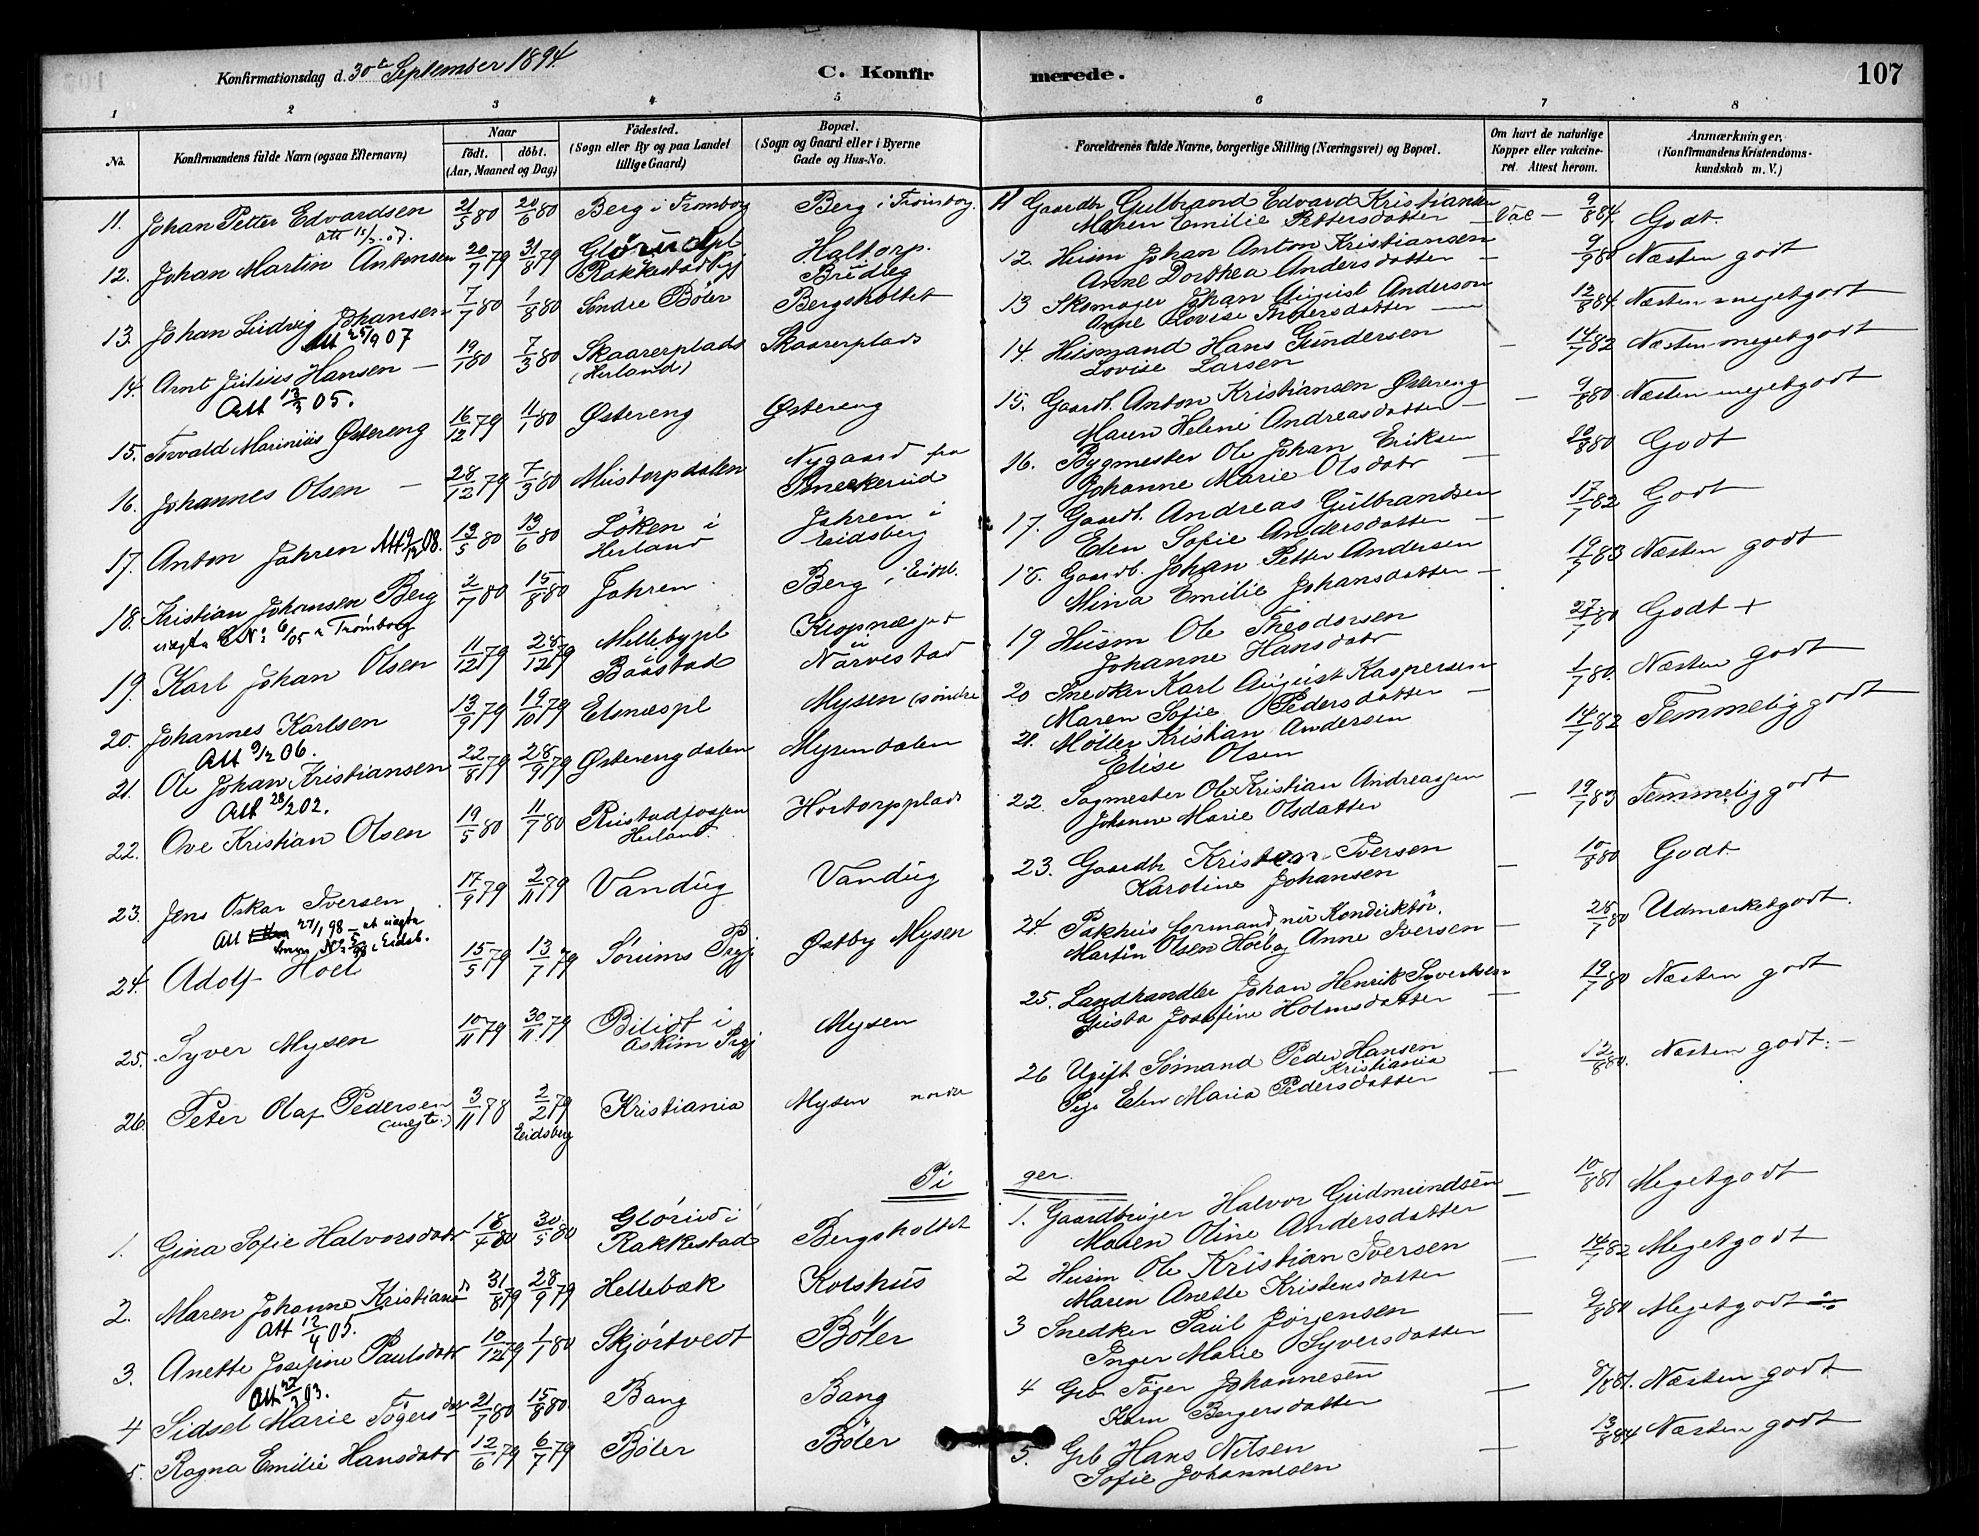 Konfirmationsdag d. 30te September 1894. C. Konfirmerede. 107
1 2 3 4 5 6 7 8
No. Konfirmandens fulde Navn (ogsaa Efternavn) Naar födt. döbt. (Aar, Maaned og Dag) Födested. (Sogn eller By og paa Landet tillige Gaard) Bopæl. (Sogn og Gaard eller i Byerne Gade og Hus-No. Forældrenes fulde Navne, borgerlige Stilling (Næringsvei) og Bopæl. Om havt de naturlige Kopper eller vakcineret. Attest herom. Anmærkninger. (Konfirmandens Kristendomskundskab m. V.)
11. Johan Petter Edvardsen 21/5 80 20/6 80 Berg i Trömborg Berg i Trömborg 11 Gaardbr Gulbrand Edvard Kristiansen Vac — 9/8 84 Godt.
Maren Emilie Pettersdatter
12. Johan Martin Antonsen 20/7 79 31/8 79 Glörudpl Haltorp. 12. Husm Johan Anton Kristiansen 9/9 80 Næsten godt
Rakkestad Pgj Brudleg Anne Dorthea Andersdatter —
13. Johan Ludvig Johansen 7/7 80 1/8 80 Söndre Böler Bergsholtet 13 Skomager Johan August Anderson 12/8 84 Næsten meget godt
Att 25/9 07 Anne Lovise Andersdatter —
14. Arnt Julius Hansen — 19/1 80 7/3 80 Skaarerplads Skaarerplads 14. Husmand Hans Gundersen — 14/7 82 Næsten meget godt
Att 13/3 05. (Herland) Lovise Larsen
15. Torvald Marinius Østereng 16/12 79 11/1 80 Østereng Østereng 15. Gaardb. Anton Kristiansen Østereng — 9/8 80 Næsten meget godt
Maren Helene Andreasdatter —
16. Johannes Olsen — 28/12 79 7/3 80 Mustorpdalen Nygaard fra 16. Bygmester Ole Johan Eriksen 80 Godt
Smeekerud Johanne Marie Olsdatr —
17. Anton Jahren Att 9/2 08. 13/5 80 13/6 80 Löken i Jahren i 17. Gaardb. Andreas Gulbrandsen 17/7 82 Godt
Herland Eidsberg Elen Sofie Andersdatter —
18. Kristian Johansen Berg 2/7 80 15/8 80 Jahren Berg i Eidsb. 18. Gaardb. Johan Petter Andersen 83 Næsten godt
Mina Emilie Johansdatter —
19. Karl Johan Olsen 11/12 79 28/12 79 Mellebypl 19 Husm Ole Theodorsen 27/7 80 Godt +
Baastad Narvestad Johanne Hansdatr
20. Johannes Karlsen 13/9 79 19/10 79 Elsnæspl Mysen (söndre 20 Snedker Karl August Kaspersen 1/7 80. Næsten godt
Att 9/2 06. Maren Sofie Pedersdatter —
21. Ole Johan Kristiansen 22/8 79 28/9 79 Østerengdalen Mysendalen 21. Möller Kristian Andersen 14/7 82 Temmelig godt
Att 28/2 02. Elise Olsen
22. Ove Kristian Olsen 19/5 80 11/7 80 Ristadfossen Hortorpplads 22. Sagmester Ole Kristian Andreassen — 19/7 83 Temmelig godt
Herland. Johanne Marie Olsdatter
23. Jens Oskar Iversen 17/9 79 2/11 79 Vandug Vandug 23. Gaardbr Kristen Iversen — 10/8 80 Godt.
Att 27/1 98 Karoline Johansen
24. Adolf Hoel 15/5 79 13/7 79 Sörums Prgj. Østby Mysen 24. Pakhusformand, nu Konduktör, 28/7 80 Udmerket godt.
Martin Olsen Hoel og Anne Iversen —
25. Syver Mysen 10/11 79 30/11 79 Bilidt i Mysen 25. Landhandler Johan Henrik Syvertsen 19/7 80 Næsten godt
Askim Prgj Gusta Josefine Holmsdatter —
26. Peter Olaf Pedersen 3/11 78 2/2 79 Kristiania Mysen nordre 26 Ugift Sömand Peder Hansen — 12/8 80. Næsten godt. —
(uægte.) Eidsberg Kristiania
Pige Elen Maria Pedersdatter
Piger.
1. Gina Sofie Halvorsdatr 18/4 80 30/5 80 Glörud i Bergsholtet 1. Gaardbruger Halvor Gudmundsen — 10/8 81 Meget godt
Rakkestad Maren Oline Andersdatter
2. Maren Johanne Kristiansd 31/8 79 28/9 79 Hellebæk Kolshus 2 Husm Ole Kristian Iversen — 14/7 82 Meget godt
Att 12/4 05. Maren Anette Kristensdatter
3. Anette Josefine Paulsdatr 10/12 79 1/1 80 Skjörtvedt Böler 3 Snedker Paul Jörgensen — 9/8 80 Meget godt
Att 03. Inger Marie Syversdatter
4 Sidsel Marie Tögersdatr 21/7 80 15/8 80 Bang Bang 4 Grb. Töger Johannesen — 81. Næsten godt
Karn Bergersdatter
5. Ragna Emilie Hansdatr 12/6 79 6/7 79 Böler Böler 5. Grb Hans Nilsen — 13/8 84 Næsten godt
Sofie Johannesen